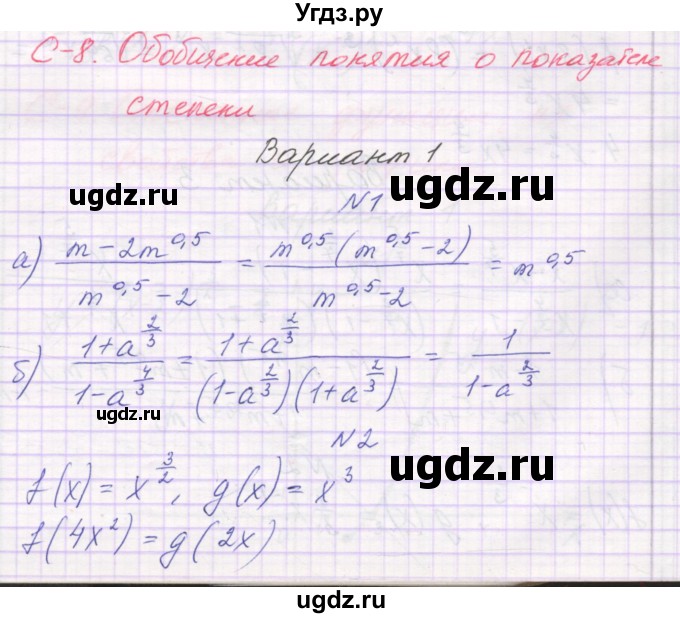 Угдз.ру
С-8. Обобщение понятия о показателе
степени
Вариант 1
ugdz.ru ugdz.ru
№1
а) (m - 2m^0,5)/(m^0,5 - 2) = (m^0,5 (m^0,5 - 2))/(m^0,5 - 2) = m^0,5
ugdz.ru
б) (1 + a^(2/3))/(1 - a^(4/3)) = (1 + a^(2/3))/((1 - a^(2/3))(1 + a^(2/3))) = 1/(1 - a^(2/3))
№2
ugdz.ru
f(x) = x^(3/2), g(x) = x^3
f(4x^2) = g(2x)
ugdz.ru